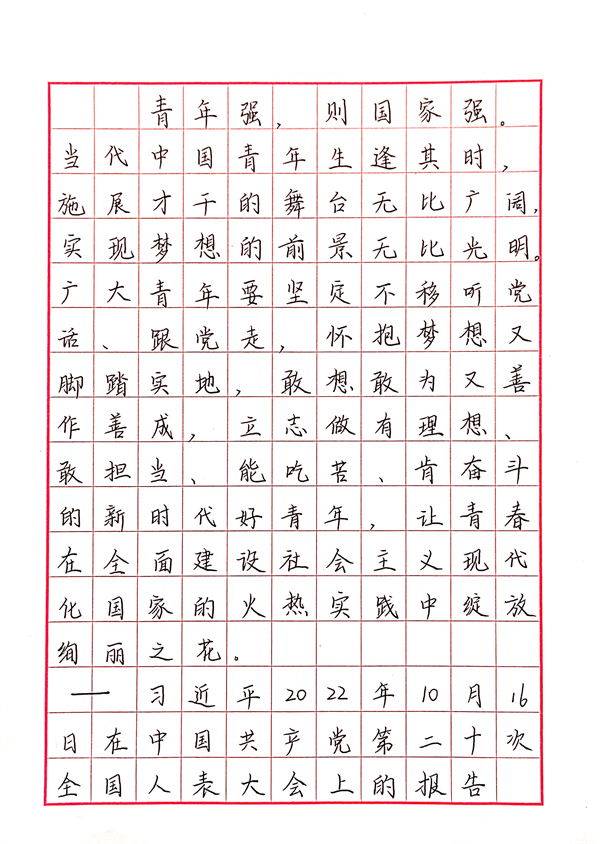 青年强，则国家强。
当代中国青年生逢其时，
施展才干的舞台无比广阔，
实现梦想的前景无比光明。
广大青年要坚定不移听党
话、跟党走，怀抱梦想又
脚踏实地，敢想敢为又善
作善成，立志做有理想、
敢担当、能吃苦、肯奋斗
的新时代好青年，让青春
在全面建设社会主义现代
化国家的火热实践中绽放
绚丽之花。
——习近平2022年10月16
日在中国共产党第二十次
全国人表大会上的报告